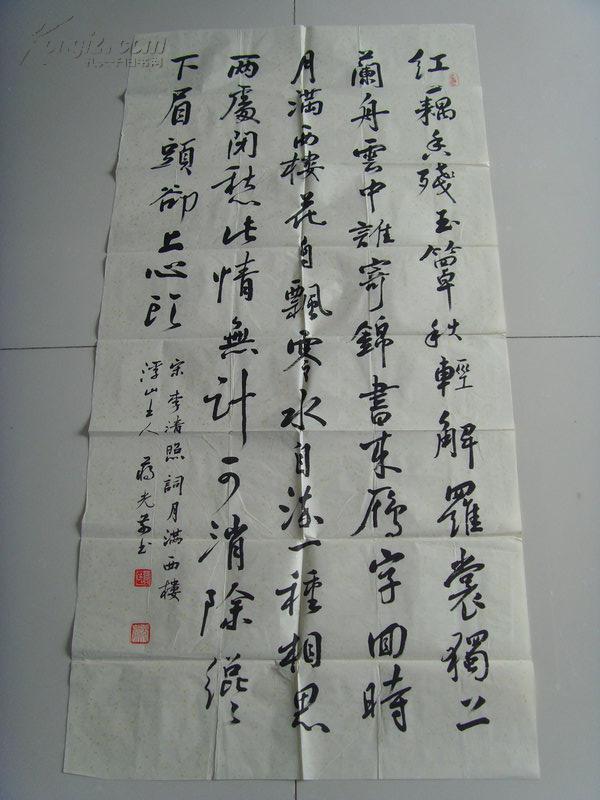 红藕香残玉簟秋轻解罗裳獨上
蘭舟雲中誰寄錦書来雁字回時
月滿西樓花自飄零水自流一種相思
兩處閑愁此情無計可消除纔
下眉頭卻上心頭
宋李清照詞月滿西樓
浮山主人蔣光